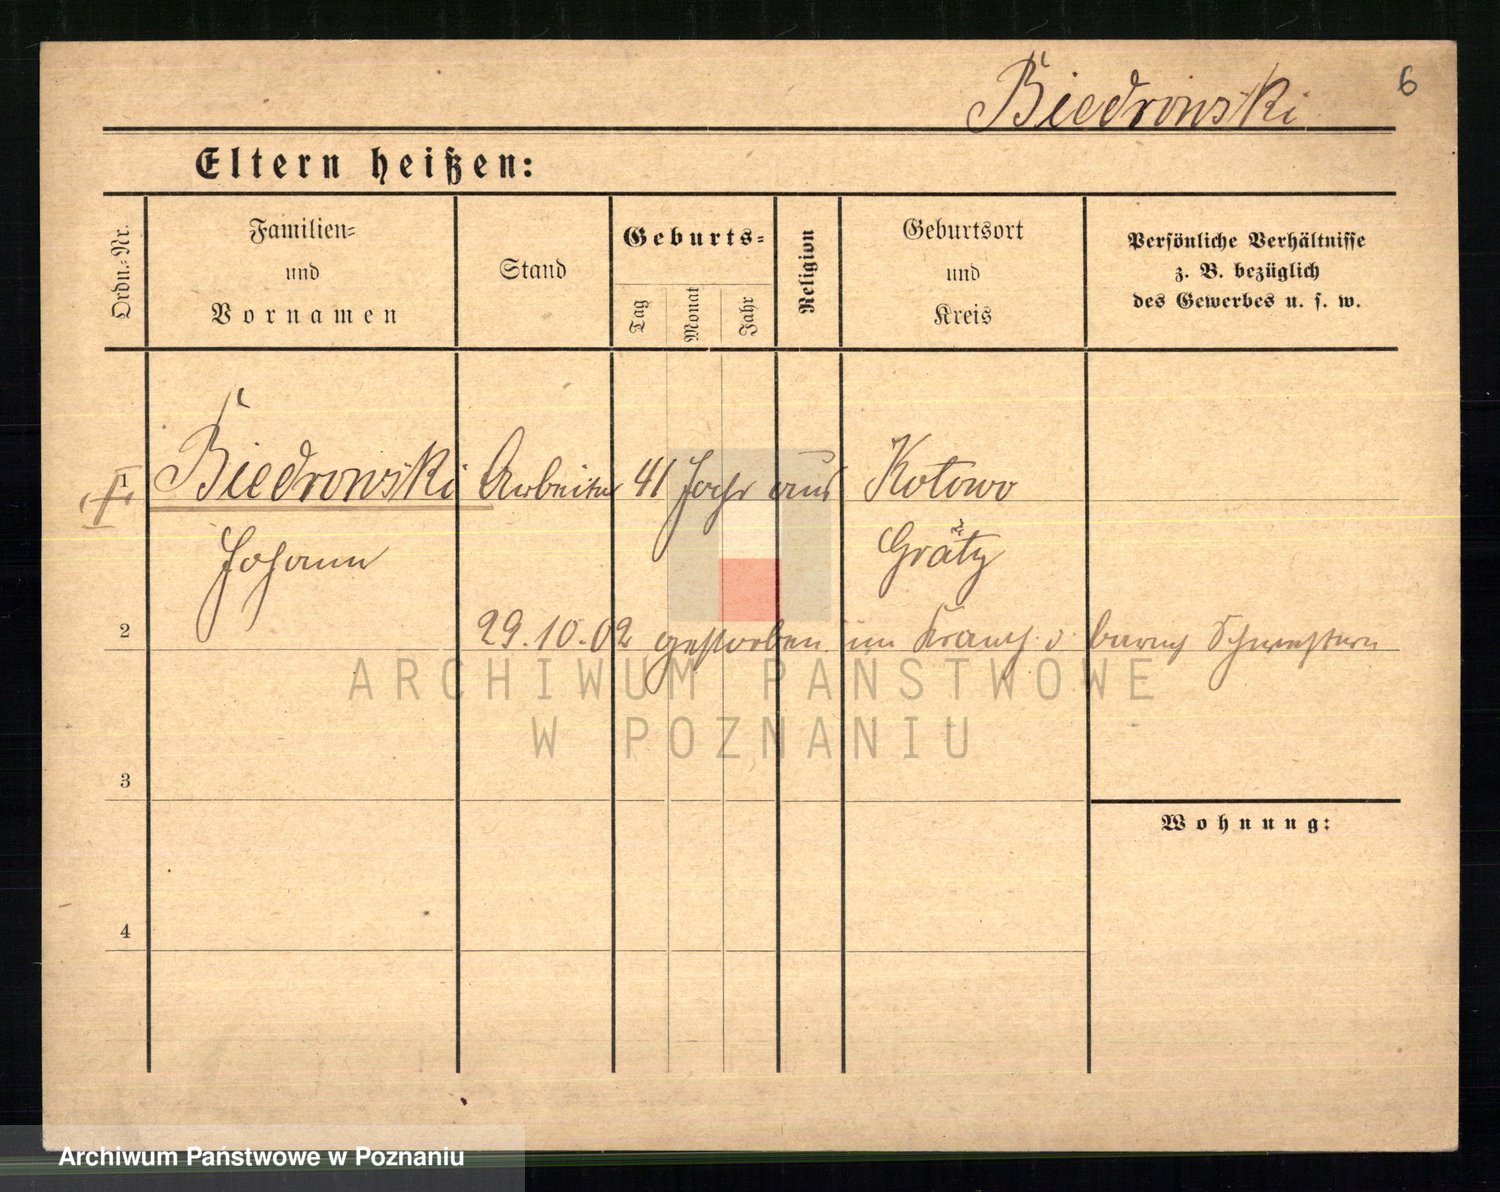 Biedrowski 6
Eltern heißen:
Ordn.-Nr.
Familien-
und
Vornamen
Stand
Geburts-
Tag
Monat
Jahr
Religion
Geburtsort
und
Kreis
Persönliche Verhältnisse
z. B. bezüglich
des Gewerbes u. s. w.
1 Biedrowski Arbeiter 41 Jahr aus Kotowo
Johann Grätz
2 29.10.02 gestorben im Krankh. d. barmh Schwestern
ARCHIWUM PAŃSTWOWE
W POZNANIU
3
Wohnung:
4
Archiwum Państwowe w Poznaniu